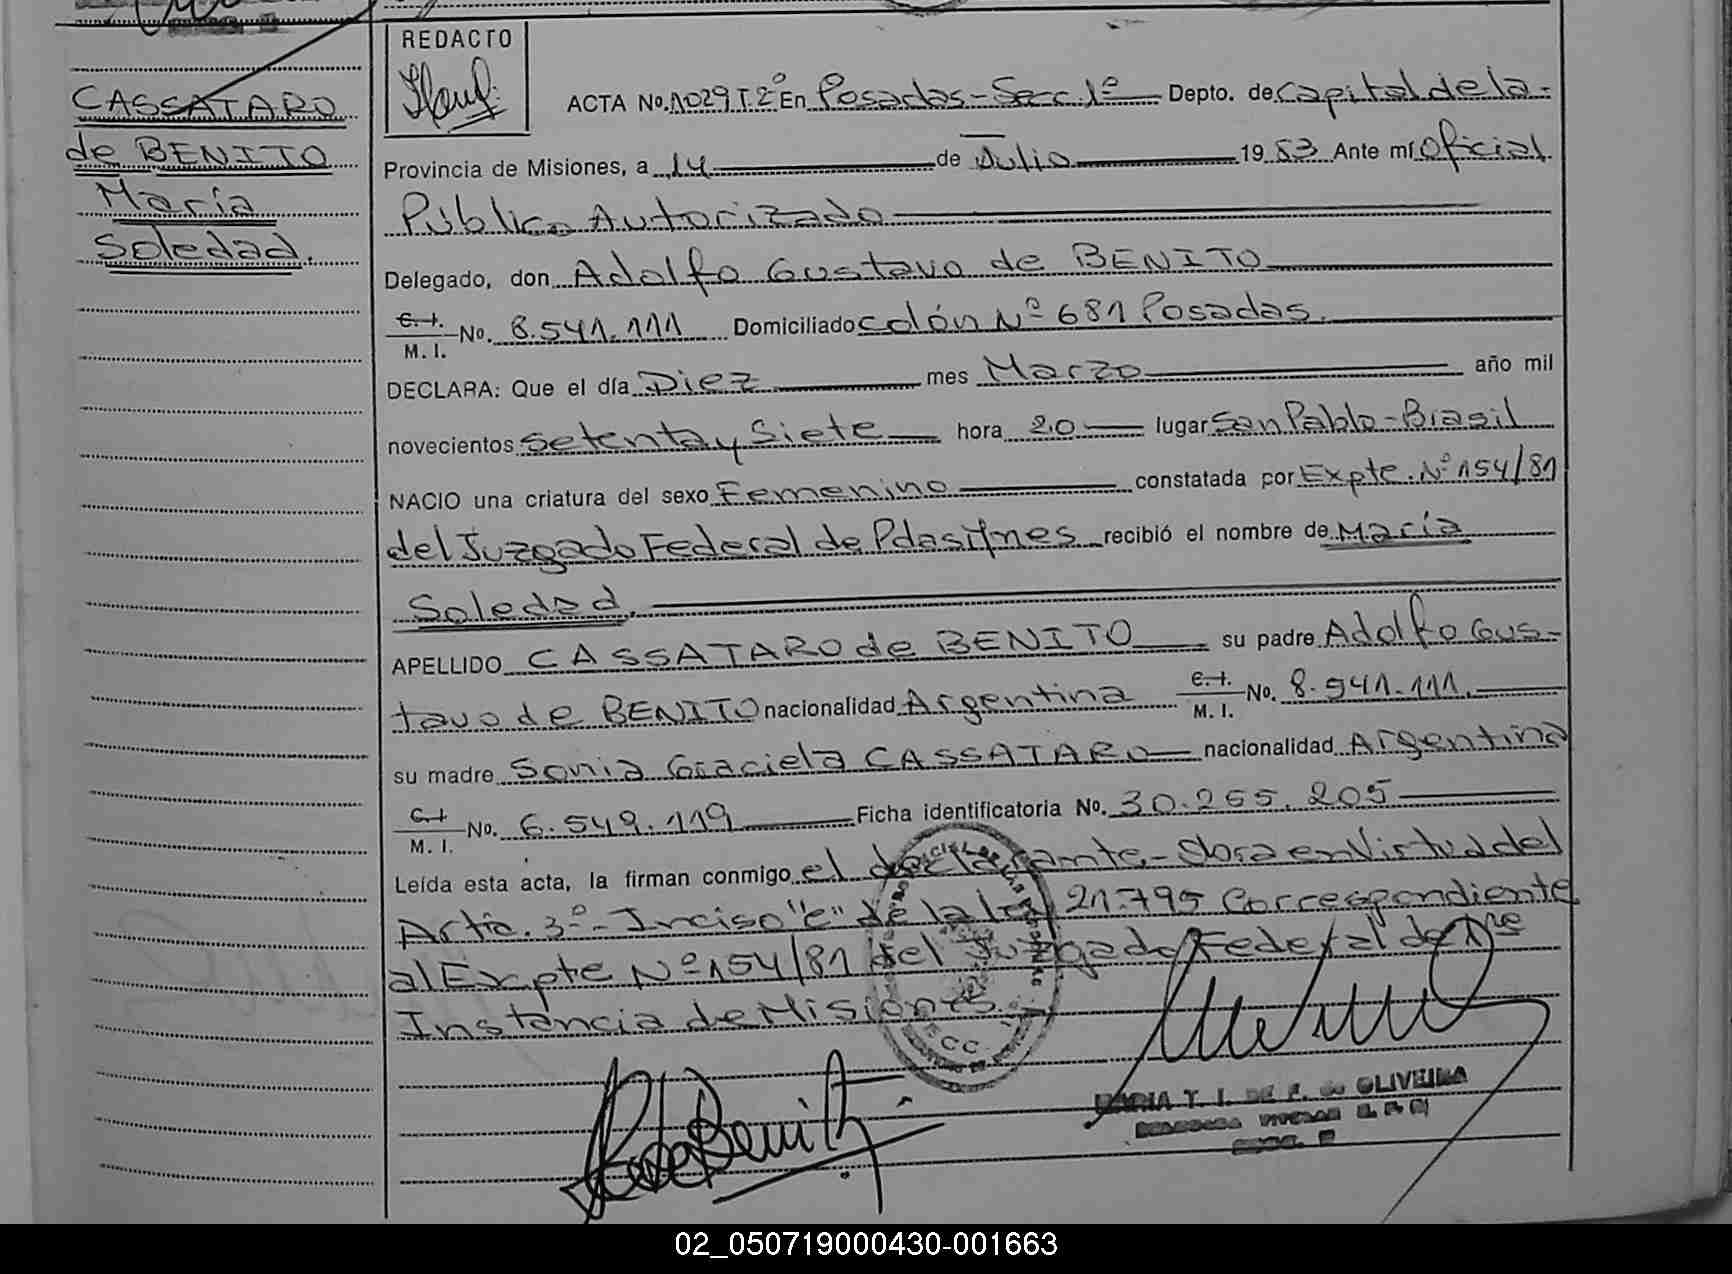 CASSATARO
de BENITO
María
Soledad.
REDACTO
ACTA No. 1029 T.2º En Posadas - Secc. 1º Depto. de Capital de la -
Provincia de Misiones, a 14 de Julio 1983 Ante mí Oficial
Público Autorizado
Delegado, don Adolfo Gustavo de BENITO
C.I.
M. I. No. 8.541.111 Domiciliado Colón Nº 681 Posadas.
DECLARA: Que el día Diez mes Marzo año mil
novecientos Setenta y Siete hora 20 lugar San Pablo - Brasil
NACIO una criatura del sexo Femenino constatada por Expte. Nº 154/81
del Juzgado Federal de Pdas. Mnes recibió el nombre de María
Soledad.
APELLIDO CASSATARO de BENITO su padre Adolfo Gus-
tavo de BENITO nacionalidad Argentina C.I.
M. I. No. 8.541.111.
su madre Sonia Graciela CASSATARO nacionalidad Argentina
C.I
M. I. No. 6.549.119 Ficha identificatoria No. 30.265.205
Leída esta acta, la firman conmigo el declarante - Obra en Virtud del
Artic. 3º - Inciso "c" de la Ley 21.795 Correspondiente
al Expte Nº 154/81 del Juzgado Federal de
Instancia de Misiones.
MARIA T. I. DE OLIVEIRA
02_050719000430-001663